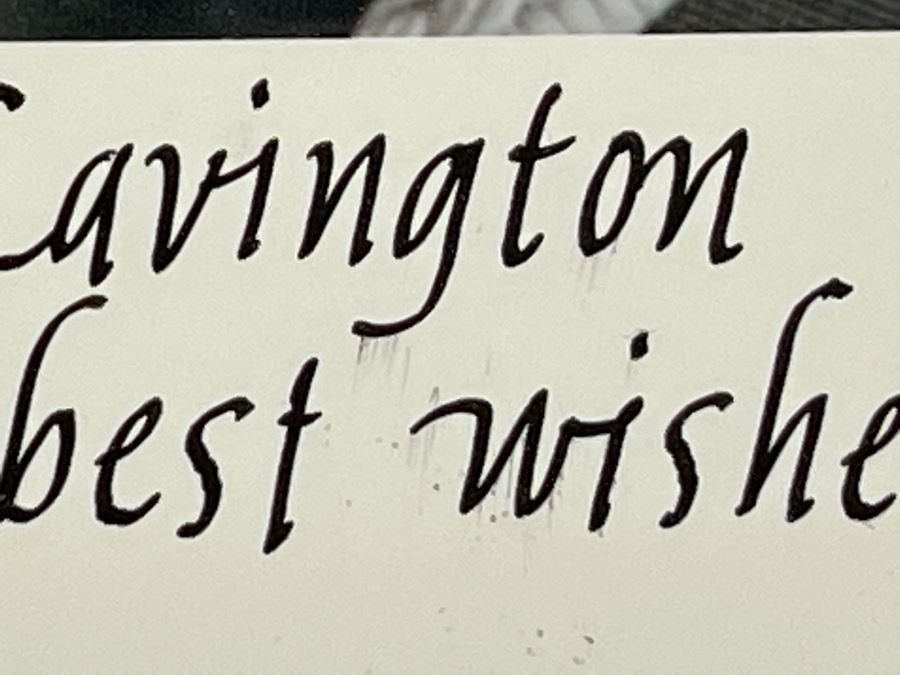 Cavington
best wishe